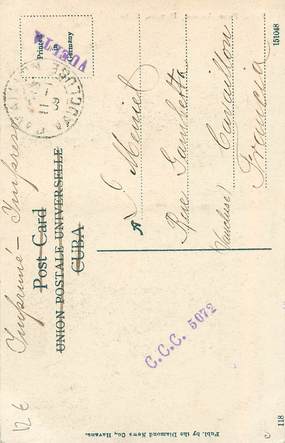 Imprimé - Imprimé
Post Card
UNION POSTALE UNIVERSELLE
CUBA
Printed
in
Germany
VUELTA
151048
J Meniel
Rue Gambetta
Cavaillon
(Vaucluse)
Francia
C.C.C. 5072
Publ. by the Diamond News Co., Havana.
118
12 €
c